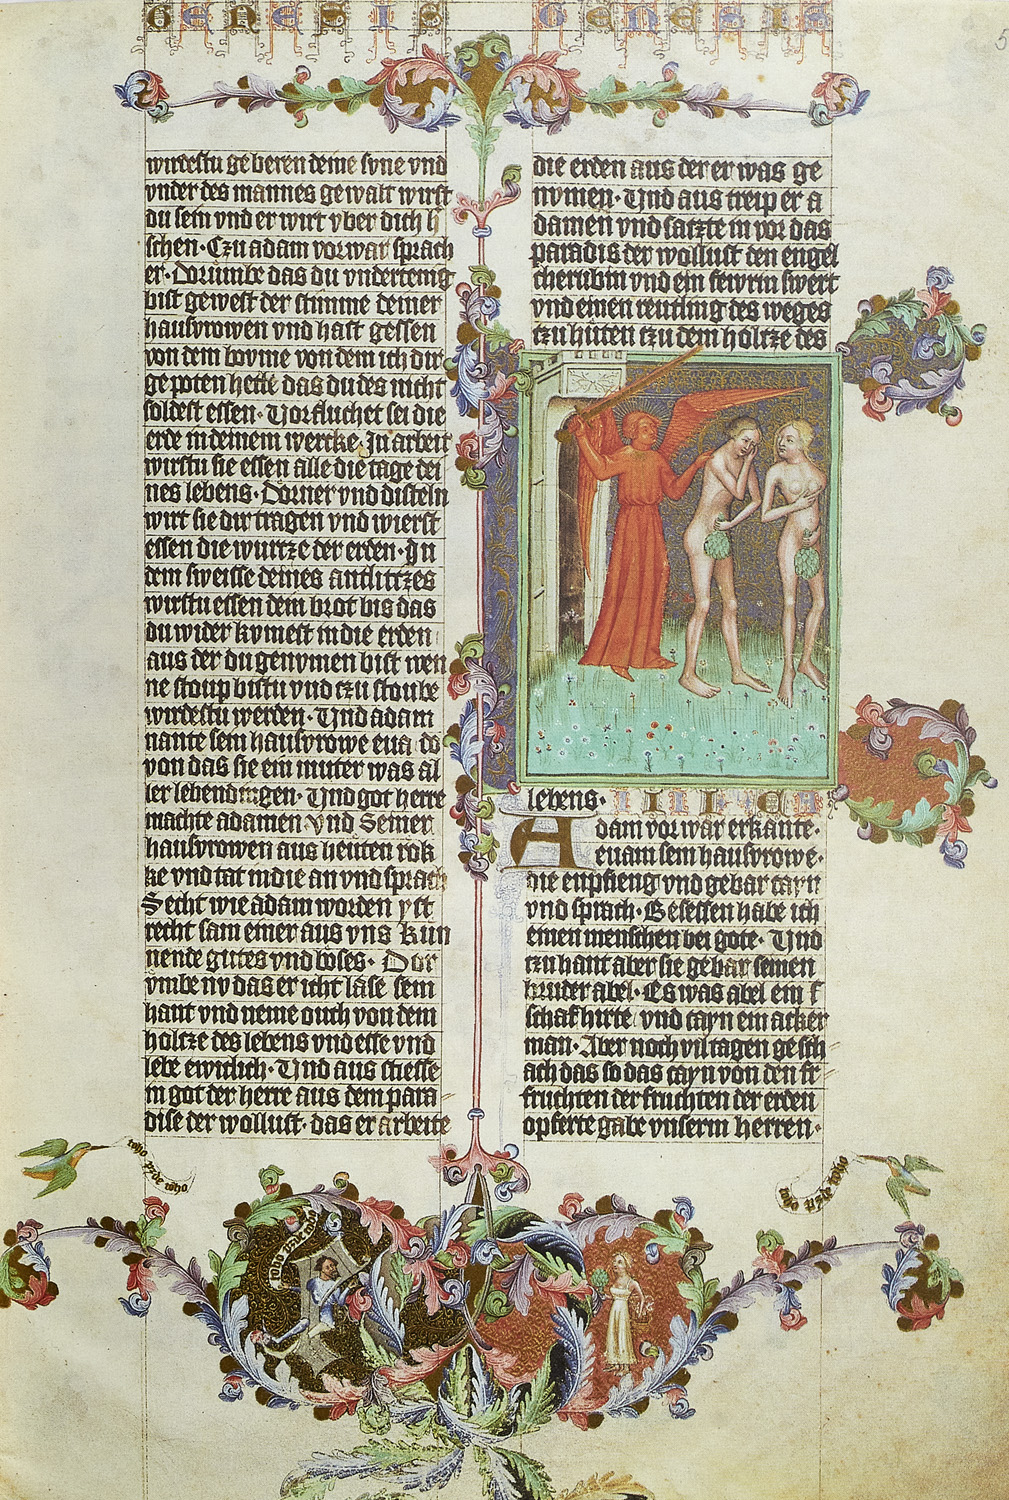 GENESIS GENESIS
5
wirdestu geberen deine sune vnd
vnder des mannes gewalt wirst
du sein vnd er wirt vber dich h
schen · Czu adam vorwar sprach
er · Dorumbe das du vndertenig
bist gewest der stimme deiner
hausvrowen vnd hast gessen
von dem bovme von dem ich dir
gepoten hette das du des nicht
soldest essen · Vorfluchet sei die
erde in deinem wercke · In arbeit
wirstu sie essen alle die tage dei
nes lebens · Dorner vnd disteln
wirt sie dir tragen vnd wierst
essen die wurtze der erden · In
dem sweisse deines antlitzes
wirstu essen dem brot bis das
du wider kvmest in die erden
aus der du genvmen bist wen
ne stoup bistu vnd czu stoube
wirdestu werden · Vnd adam
nante sein hausvrowe eua do
von das sie ein muter was al
ler lebendingen · Vnd got herre
machte adamen vnd Seiner
hausvrowen aus heuten rok
ke vnd tat in die an vnd sprach
Secht wie adam worden yst
recht sam einer aus vns kun
nende gutes vnd böses · Dor
vmbe nv das er icht lase sein
hant vnd neme ouch von dem
holtze des lebens vnd esse vnd
lebe ewiclich · Vnd aus stiesse
in got der herre aus dem para
dise der wollust · das er arbeite
die erden aus der er was ge
nvmen · Vnd aus treip er a
damen vnd satzte in vor das
paradis der wollust den engel
cherubin vnd ein fewrin swert
vnd einen reutling des weges
czu huten czu dem holtze des
lebens · IIII CA
Adam vorwar erkante ·
euam sein hausvrowe ·
die enpfieng vnd gebar cayn
vnd sprach · Besessen habe ich
einen menschen bei gote · Vnd
czu hant aber sie gebar seinen
bruder abel · Es was abel ein s
schafhirte vnd cayn ein acker
man · Aber noch vil tagen gesch
ach das so das cayn von den fr
fruchten der fruchten der erden
opferte gabe vnserm herren ·
toho pzde toho
toho pzde toho
toho pzde toho